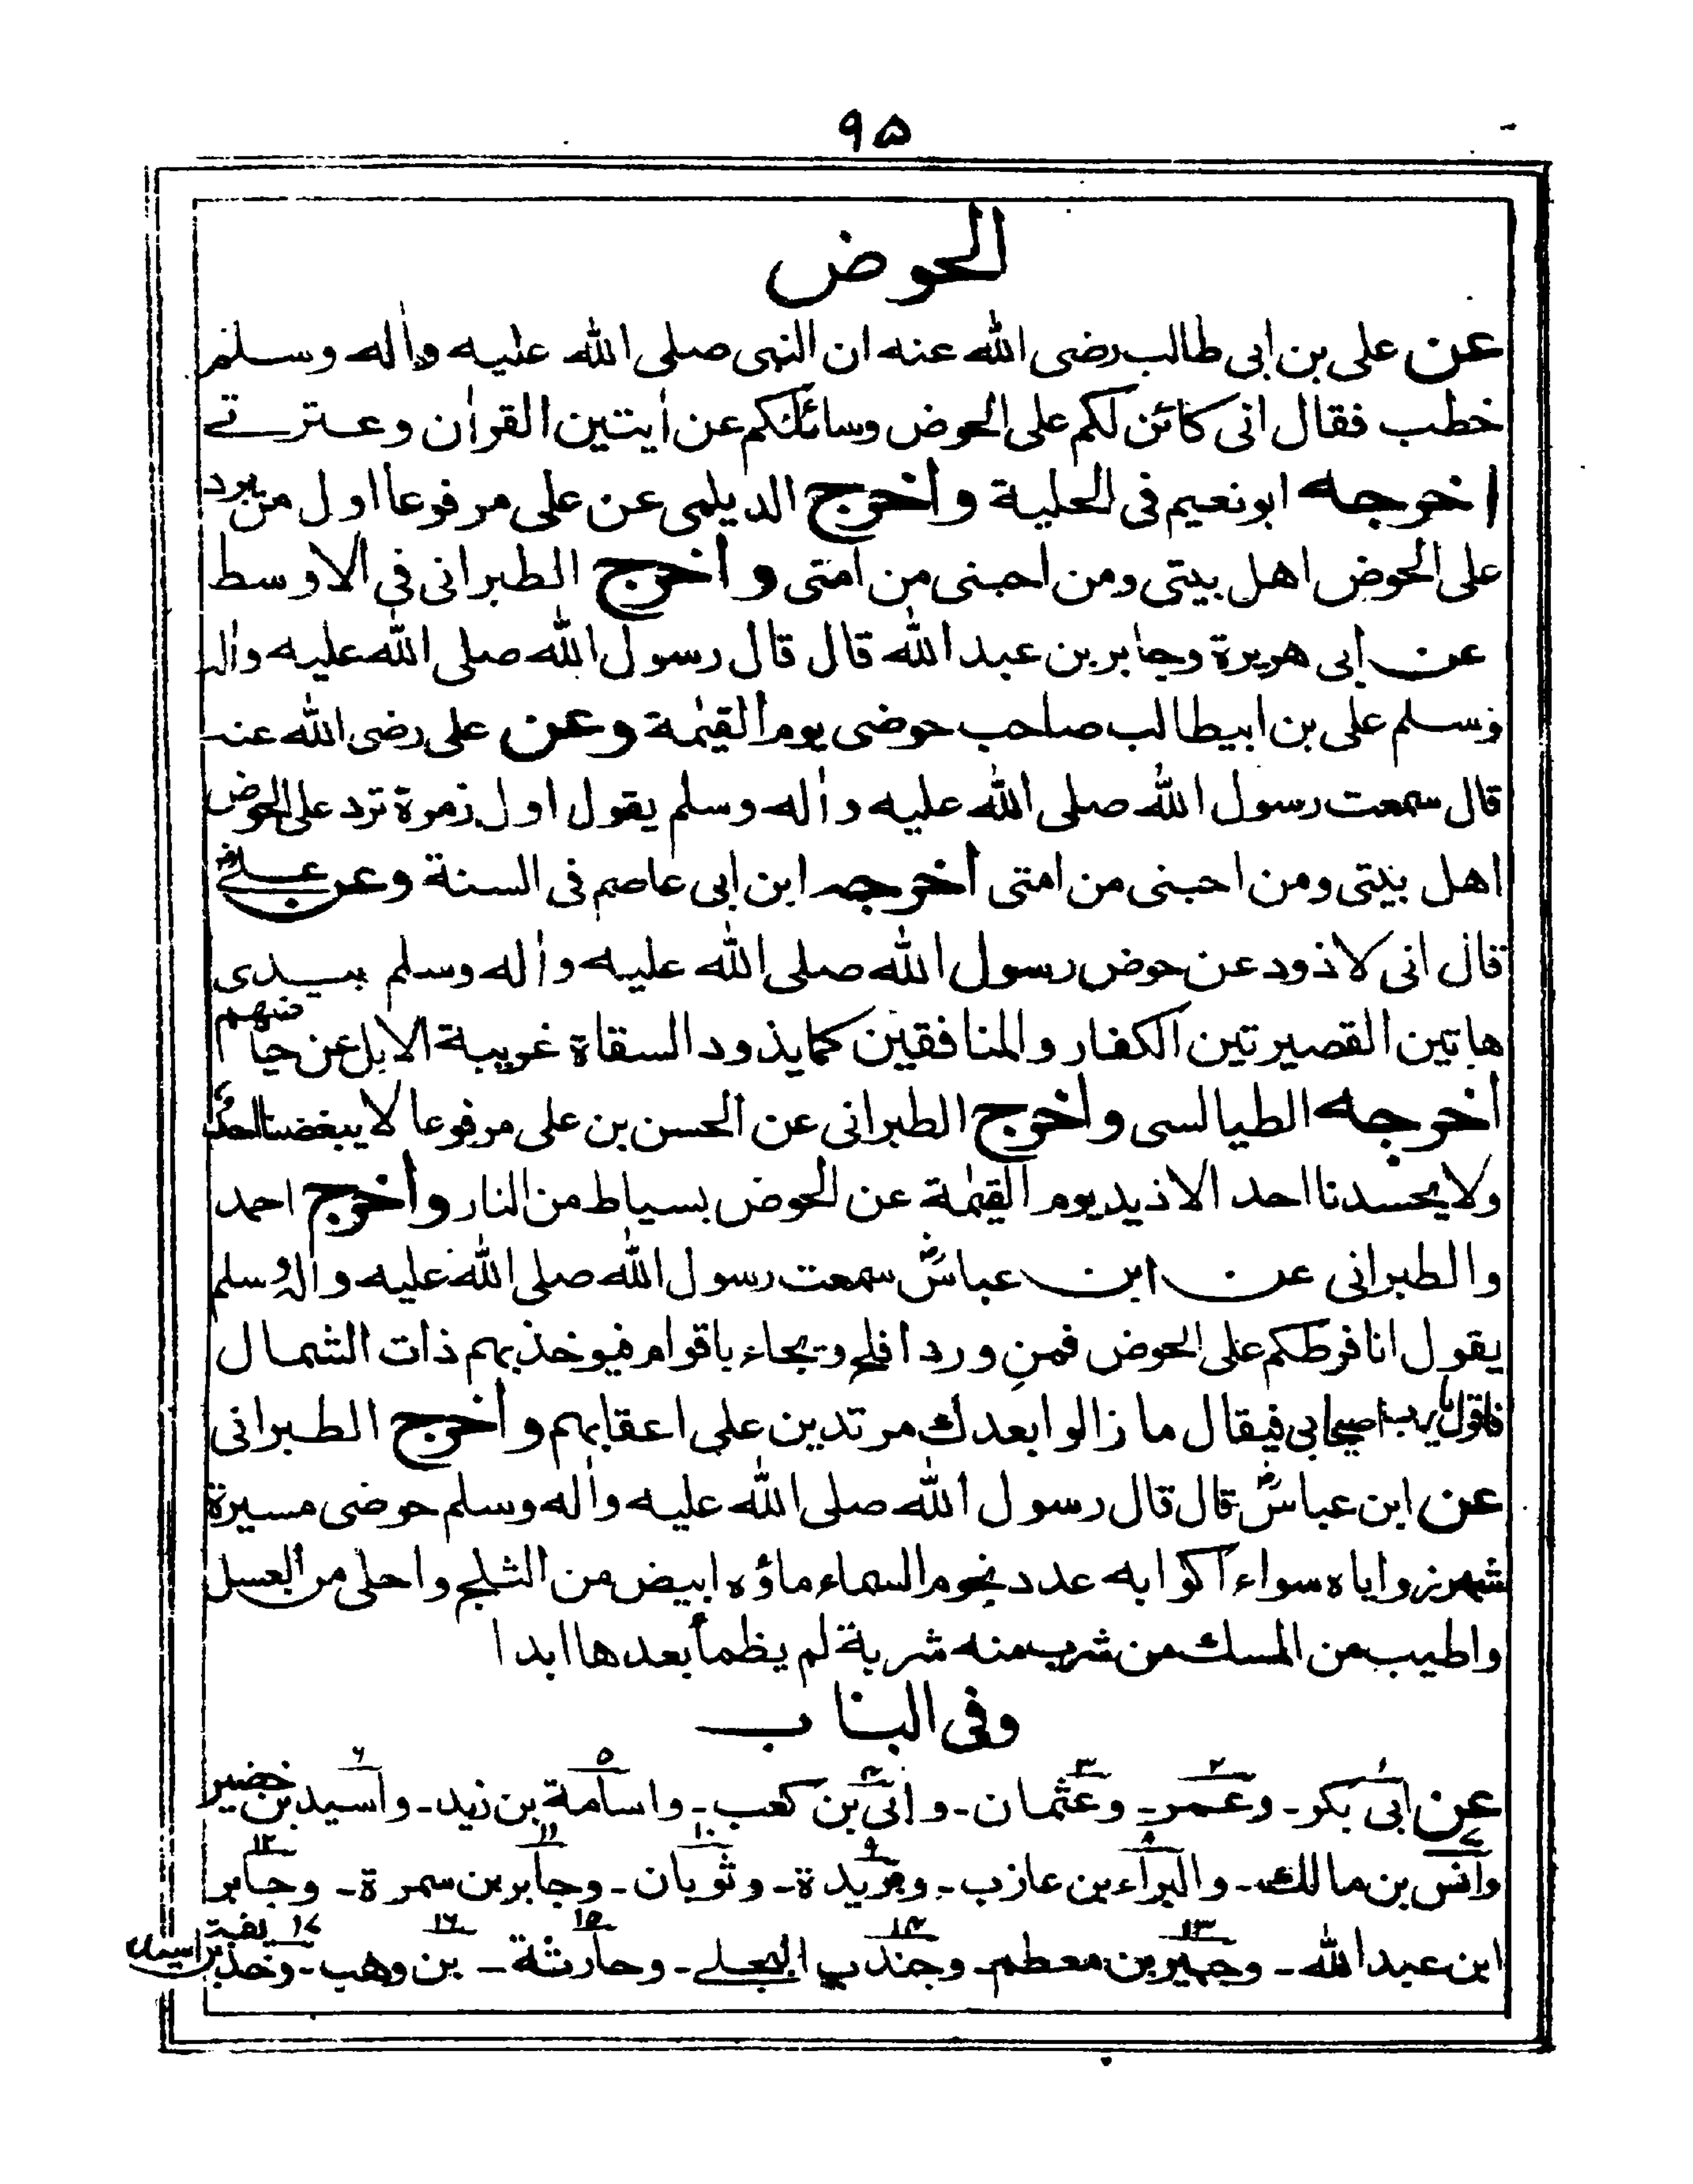 ٩٥
الحوض
عن على بن ابى طالب رضى الله عنه ان النبى صلى الله عليه واٰله وسلم
خطب فقال انى كائن لكم على الحوض وسائلكم عن اٰيتين القراٰن وعترتے
اخرجه ابونعيم فى الحلية واخرج الديلمى عن على مرفوعا اول من يرد
على الحوض اهل بيتى ومن احبنى من امتى واخرج الطبرانى فى الاوسط
عن ابى هريرة وجابر بن عبد الله قال قال رسول الله صلى الله عليه واٰلہ
وسلم على بن ابيطالب صاحب حوضى يوم القيٰمة وعن على رضى الله عنه
قال سمعت رسول الله صلى الله عليه واٰله وسلم يقول اول زمرة ترد على الحوض
اهل بيتى ومن احبنى من امتى اخرجه ابن ابى عاصم فى السنة وعن علےؓ
قال انى لاذود عن حوض رسول الله صلى الله عليه واٰله وسلم بيدى
هاتين القصيرتين الكفار والمنافقين كما يذود السقاة غريبة الابل عن حياضهم
اخرجه الطيالسى واخرج الطبرانى عن الحسن بن على مرفوعا لا يبغضنا احد
ولا يحسدنا احد الا ذيد يوم القيٰمة عن الحوض بسياط من النار واخرج احمد
والطبرانى عن ابن عباسؓ سمعت رسول الله صلى الله عليه واٰلہ وسلم
يقول انا فرطكم على الحوض فمن ورد افلح ويجاء باقوام فيوخذ بهم ذات الشمال
فاقول يا رب اصيحابى فيقال ما زالوا بعدك مرتدين على اعقابهم واخرج الطبرانى
عن ابن عباسؓ قال قال رسول الله صلى الله عليه واٰله وسلم حوضى مسيرة
شهر زواياه سواء اكوابه عدد نجوم السماء ماؤه ابيض من الثلج واحلى من العسل
واطيب من المسك من شرب منه شربة لم يظمأ بعدها ابدا
وفى الباب
عن ابى١ بكر۔ وعمر٢۔ وعثمان٣۔ وابى٤ بن كعب۔ واسامة٥ بن زيد۔ واسيد٦ بن خضير
وانس٧ بن مالك۔ والبراء٨ بن عازب۔ وبريدة٩۔ وثوبان١٠۔ وجابر١١ بن سمرة۔ وجابر١٢
ابن عبد الله۔ وجبير١٣ بن معطم۔ وجندب١٤ البجلے۔ وحارثة١٥۔ بن١٦ وهب۔ وحذيفة١٧ بن اسيد